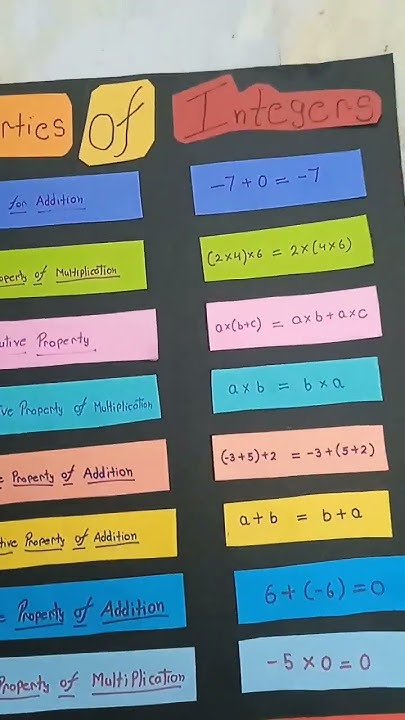 rties Of Integers
for Addition
-7 + 0 = -7
operty of Multiplication
(2×4)×6 = 2×(4×6)
utive Property
a×(b+c) = a×b + a×c
ive Property of Multiplication
a×b = b×a
e Property of Addition
(-3+5)+2 = -3+(5+2)
tive Property of Addition
a+b = b+a
e Property of Addition
6+(-6)=0
Property of Multiplication
-5×0=0